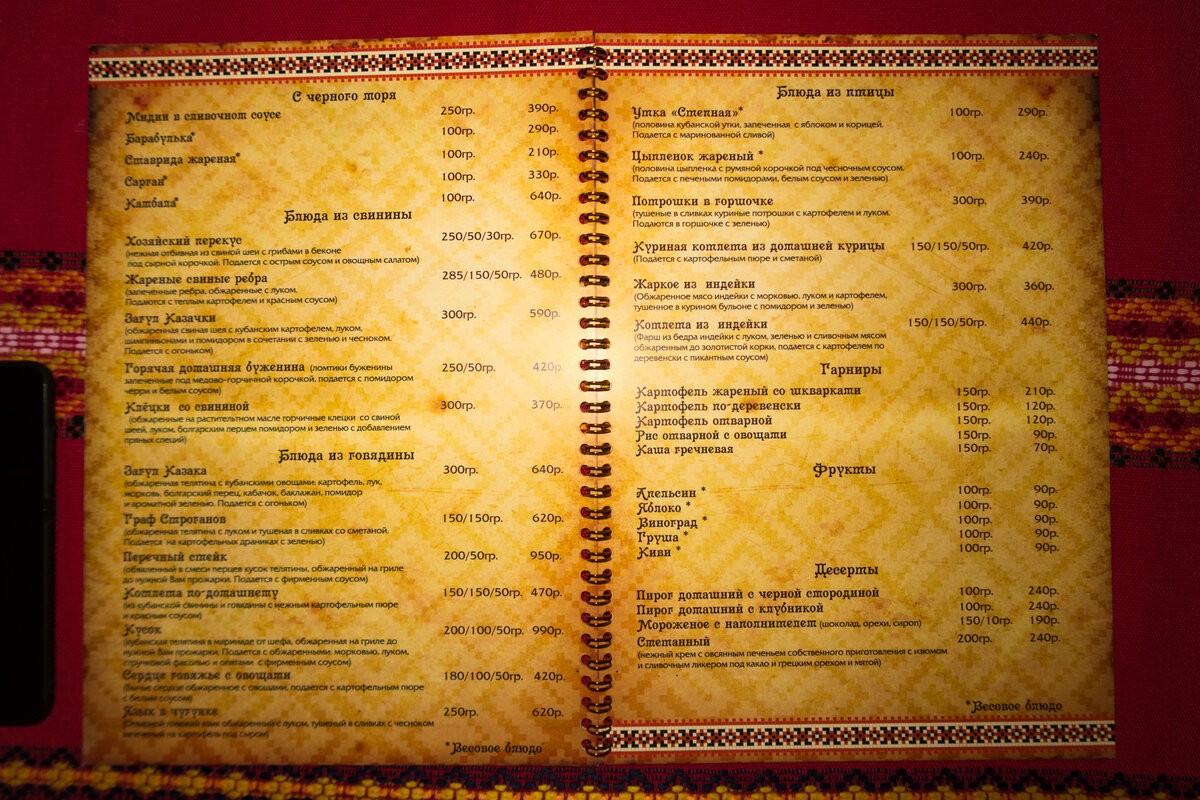 С черного моря
Мидии в сливочном соусе 250гр. 390р.
Барабулька* 100гр. 290р.
Ставрида жареная* 100гр. 210р.
Сарган* 100гр. 330р.
Камбала* 100гр. 640р.
Блюда из свинины
Хозяйский перекус 250/50/30гр. 670р.
(нежная отбивная из свиной шеи с грибами в беконе
под сырной корочкой. Подается с острым соусом и овощным салатом)
Жареные свиные ребра 285/150/50гр. 480р.
(запеченные ребра, обжаренные с луком.
Подаются с теплым картофелем и красным соусом)
Загул Казачки 300гр. 590р.
(обжаренная свиная шея с кубанским картофелем, луком,
шампиньонами и помидором в сочетании с зеленью и чесноком.
Подается с огоньком)
Горячая домашняя буженина (ломтики буженины 250/50гр. 420р.
запеченные под медово-горчичной корочкой, подается с помидором
черри и белым соусом)
Клёцки со свининой 300гр. 370р.
(обжаренные на растительтном масле горчичные клецки со свиной
шеей, луком, болгарским перцем помидором и зеленью с добавлением
пряных специй)
Блюда из говядины
Загул Казака 300гр. 640р.
(обжаренная телятина с кубанскими овощами: картофель, лук,
морковь, болгарский перец, кабачок, баклажан, помидор
и ароматной зеленью. Подается с огоньком)
Граф Строганов 150/150гр. 620р.
(обжаренная телятина с луком и тушеная в сливках со сметаной.
Подается на картофельных драниках с зеленью)
Перечный стейк 200/50гр. 950р.
(обваленный в смеси перцев кусок телятины, обжаренный на гриле
до нужной Вам прожарки. Подается с фирменным соусом)
Котлета по-домашнему 150/150/50гр. 470р.
(из кубанской свинины и говядины с нежным картофельным пюре
и красным соусом)
Кусок 200/100/50гр. 990р.
(кубанская телятина в маринаде от шефа, обжаренная на гриле до
нужной Вам прожарки. Подается с обжаренными: морковью, луком,
стручковой фасолью и опятами с фирменным соусом)
Сердце говяжье с овощами 180/100/50гр. 420р.
(бычье сердце обжаренное с овощами, подается с картофельным пюре
с белым соусом)
Язык в чугунке 250гр. 620р.
(отварной говяжий язык обжаренный с луком, тушеный в сливках с чесноком
запеченый на картофель под сыром)
*Весовое блюдо
Блюда из птицы
Утка «Степная»* 100гр. 290р.
(половина кубанской утки, запеченная с яблоком и корицей.
Подается с маринованной сливой)
Цыпленок жареный * 100гр. 240р.
(половина цыпленка с румяной корочкой под чесночным соусом.
Подается с печеными помидорами, белым соусом и зеленью)
Потрошки в горшочке 300гр. 390р.
(тушеные в сливках куриные потрошки с картофелем и луком.
Подаются в горшочке с зеленью)
Куриная котлета из домашней курицы 150/150/50гр. 420р.
(Подается с картофельным пюре и сметаной)
Жаркое из индейки 300гр. 360р.
(Обжаренное мясо индейки с морковью, луком и картофелем,
тушенное в курином бульоне с помидором и зеленью)
Котлета из индейки 150/150/50гр. 440р.
(Фарш из бедра индейки с луком, зеленью и сливочным мясом
обжаренным до золотистой корки, подается с картофелем по
деревенски с пикантным соусом)
Гарниры
Картофель жареный со шкварками 150гр. 210р.
Картофель по-деревенски 150гр. 120р.
Картофель отварной 150гр. 120р.
Рис отварной с овощами 150гр. 90р.
Каша гречневая 150гр. 70р.
Фрукты
Апельсин * 100гр. 90р.
Яблоко * 100гр. 90р.
Виноград * 100гр. 90р.
Груша * 100гр. 90р.
Киви * 100гр. 90р.
Десерты
Пирог домашний с черной стородиной 100гр. 240р.
Пирог домашний с клубникой 100гр. 240р.
Мороженое с наполнителем (шоколад, орехи, сироп) 150/10гр. 190р.
Сметанный 200гр. 240р.
(нежный крем с овсянным печеньем собственного приготовления с изюмом
и сливочным ликером под какао и грецким орехом и мятой)
*Весовое блюдо